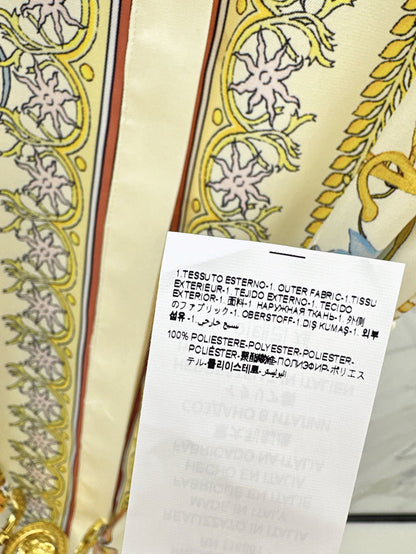 1.TESSUTO ESTERNO-1. OUTER FABRIC-1.TISSU
EXTERIEUR-1. TEJIDO EXTERNO-1. TECIDO
EXTERIOR-1. 面料-1. НАРУЖНАЯ ТКАНЬ-1. 外側
のファブリック-1.OBERSTOFF-1.DIŞ KUMAŞ-1. 외부
섬유-1. نسيج خارجي
100% POLIESTERE-POLYESTER-POLIESTER-
POLIÉSTER-聚酯纖維-ПОЛИЭФИР-ポリエス
テル-폴리에스테르-البوليستر
FABRICADO NA ITALIA
HECHO EN ITALIA
FABRIQUE EN ITALIE
MADE IN ITALY
REALIZZATO IN ITALIA